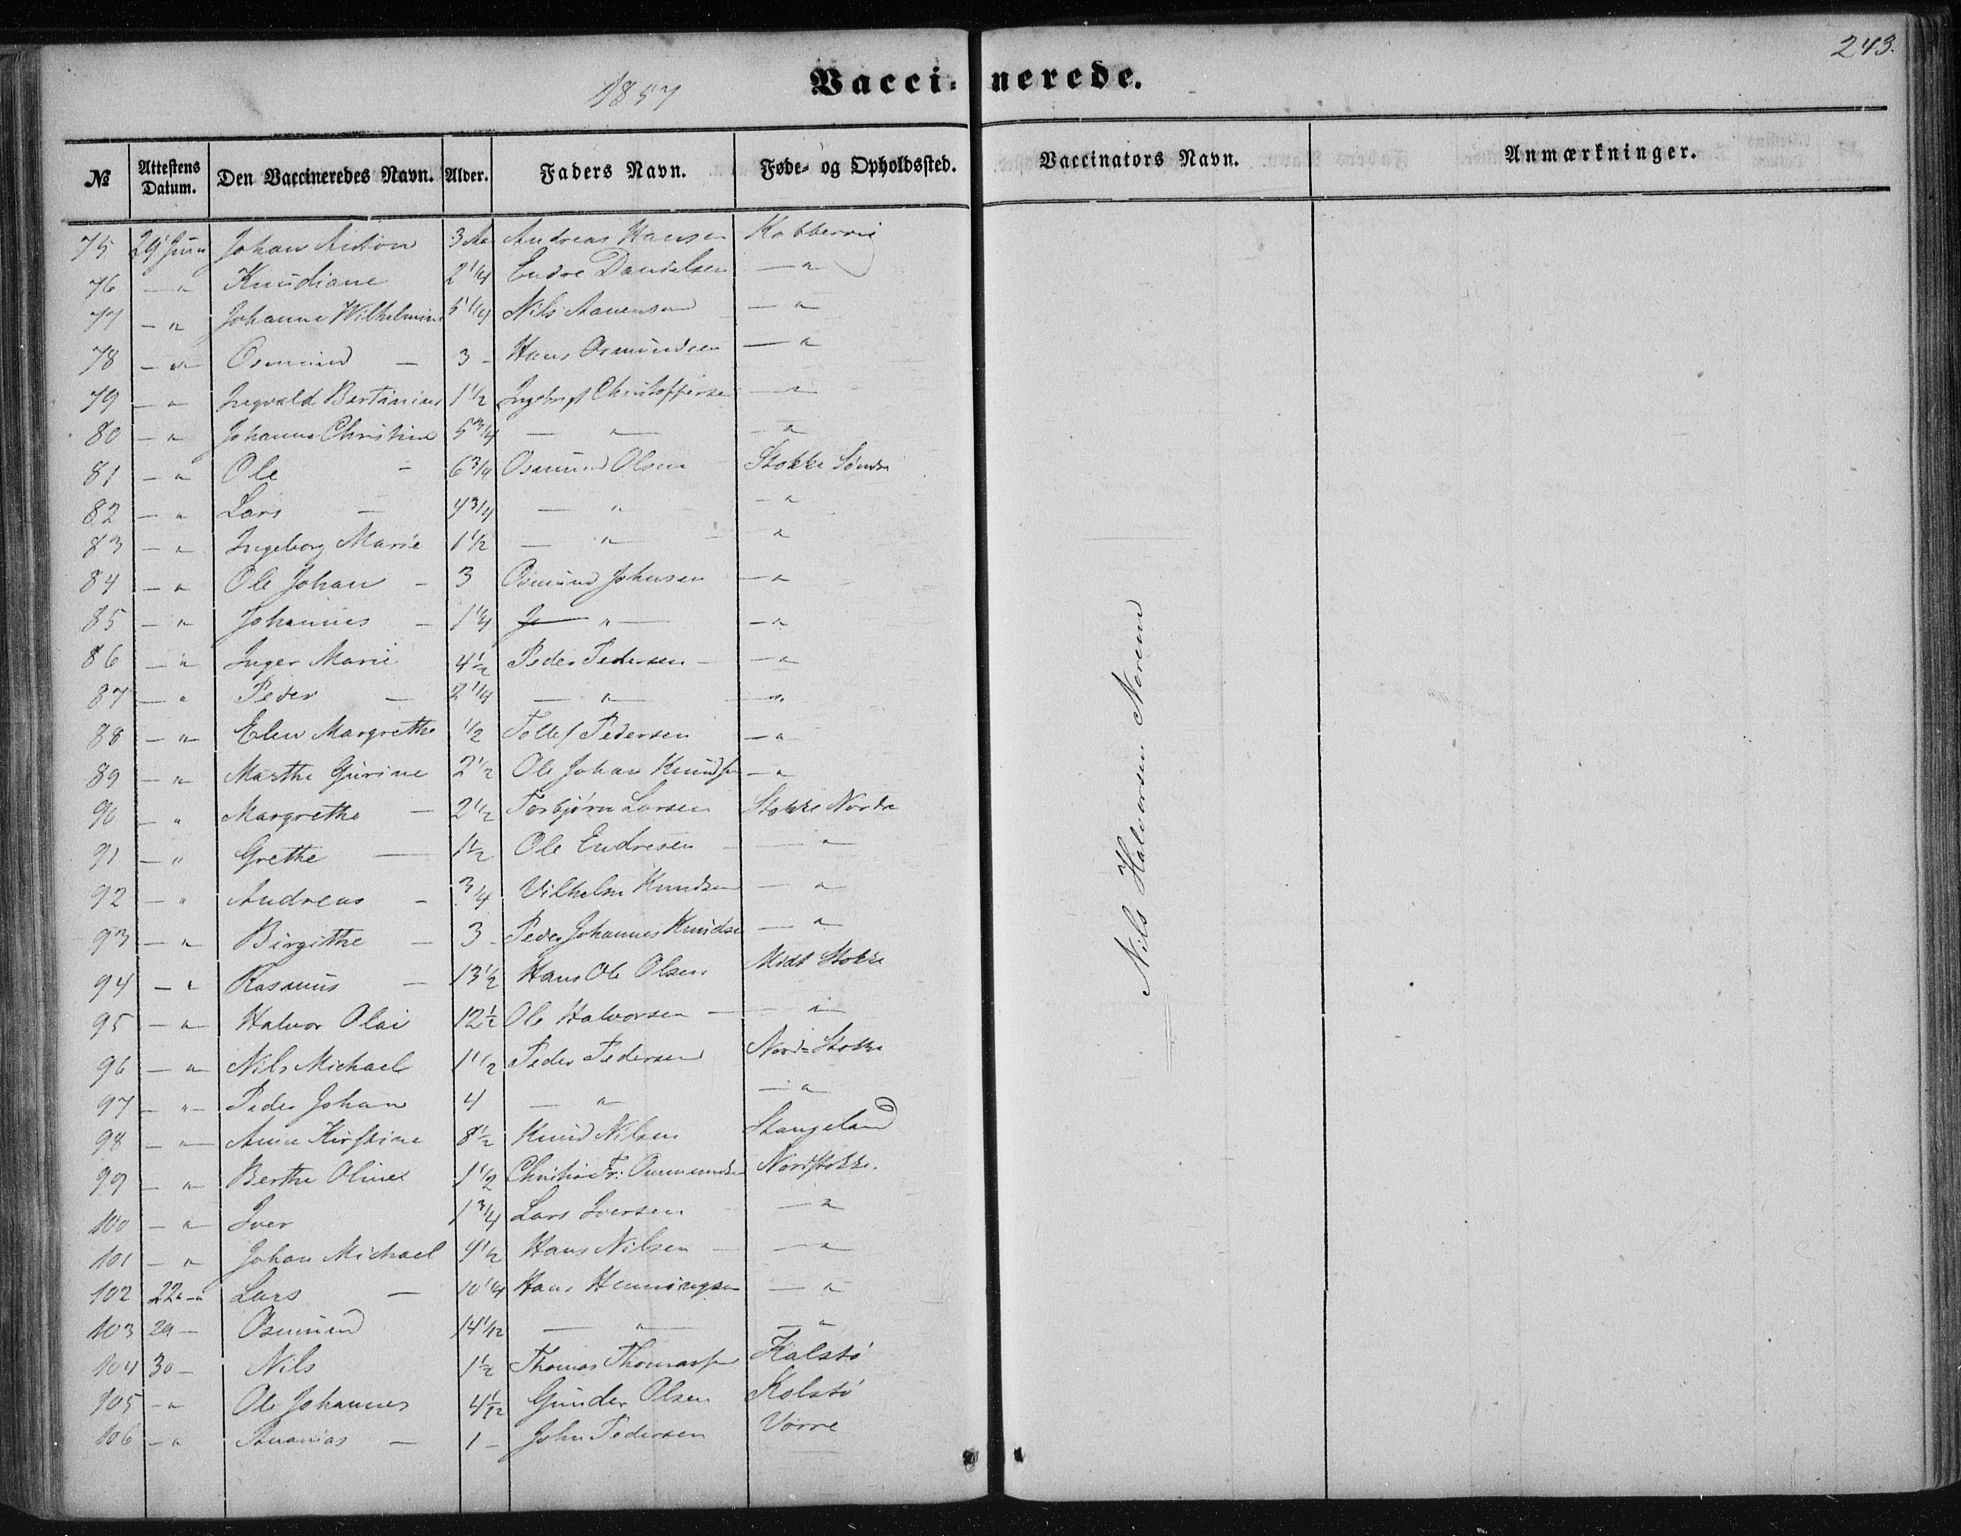 243.
1857 Vaccinerede.
№ Attestens Datum. Den Vaccineredes Navn. Alder. Faders Navn. Føde- og Opholdssted. Vaccinators Navn. Anmærkninger.
75 29 Juni Johan Anton 3 Aar Andreas Hansen Kobbervig
76 — " Knudiane 2 1/4 Endre Danielsen — "
77 — " Johanne Wilhelmine 5 1/4 Nils Aanensen — "
78 — " Osmund — 3 - Hans Osmundsen — "
79 — " Ingvald Bertinius 1 1/2 Ingebrigt Christoffersen — "
80 — " Johanne Christine 5 3/4 — " — — "
81 — " Ole - 6 3/4 Osmund Olsen Stokke Søndre
82 — " Lars — 4 3/4 — " - "
83 — " Ingeborg Marie 1 1/2 — " — "
84 — " Ole Johan - 3 Osmund Johnsen — "
85 — " Johannes - 1 1/4 — " — — "
86 — " Inger Marie 4 1/2 Peder Pedersen — — "
87 — " Peder — 2 1/4 — " — — "
88 — " Elen Margrethe 1/2 Tollef Pedersen — "
89 — " Marthe Gurine 2 1/2 Ole Johan Knudsen — "
90 — " Margrethe — 2 1/2 Torbjørn Larsen Stokke Nordre
91 — " Grethe — 1 1/2 Ole Endresen — "
92 — " Andreas - 3/4 Vilhelm Knudsen — "
93 — " Birgithe - 3 - Peder Johannes Knudsen — "
94 — " Rasmus — 13 1/2 Hans Ole Olsen Midt Stokke
95 — " Halvor Olai 12 1/2 Ole Halvorsen — — "
96 — " Nils Michael 1 1/2 Peder Pedersen Nord-Stokke
97 — " — Peder Johan 4 — " — "
98 — " Anne Kirstine 8 1/2 Knud Nilsen Stangeland
99 — " Berthe Oline 1 1/2 Christian Fr: Nordstokke.
100 — " Iver 1 3/4 Lars Iversen — "
101 — " Johan Michael 4 1/2 Hans Nilsen — — "
102 22 " — " Lars — 10 1/4 Hans Henningsen — "
103 29 — Osmund 14 1/12 — " — — "
104 30 — Nils 1 1/2 Thomas Thomassen Kalstø
105 — " Ole Johannes 4 1/12 Gunder Olsen Kolstø
106 — " Ananias — 1 — John Pedersen Vorre
Nils Halvorsen Norem